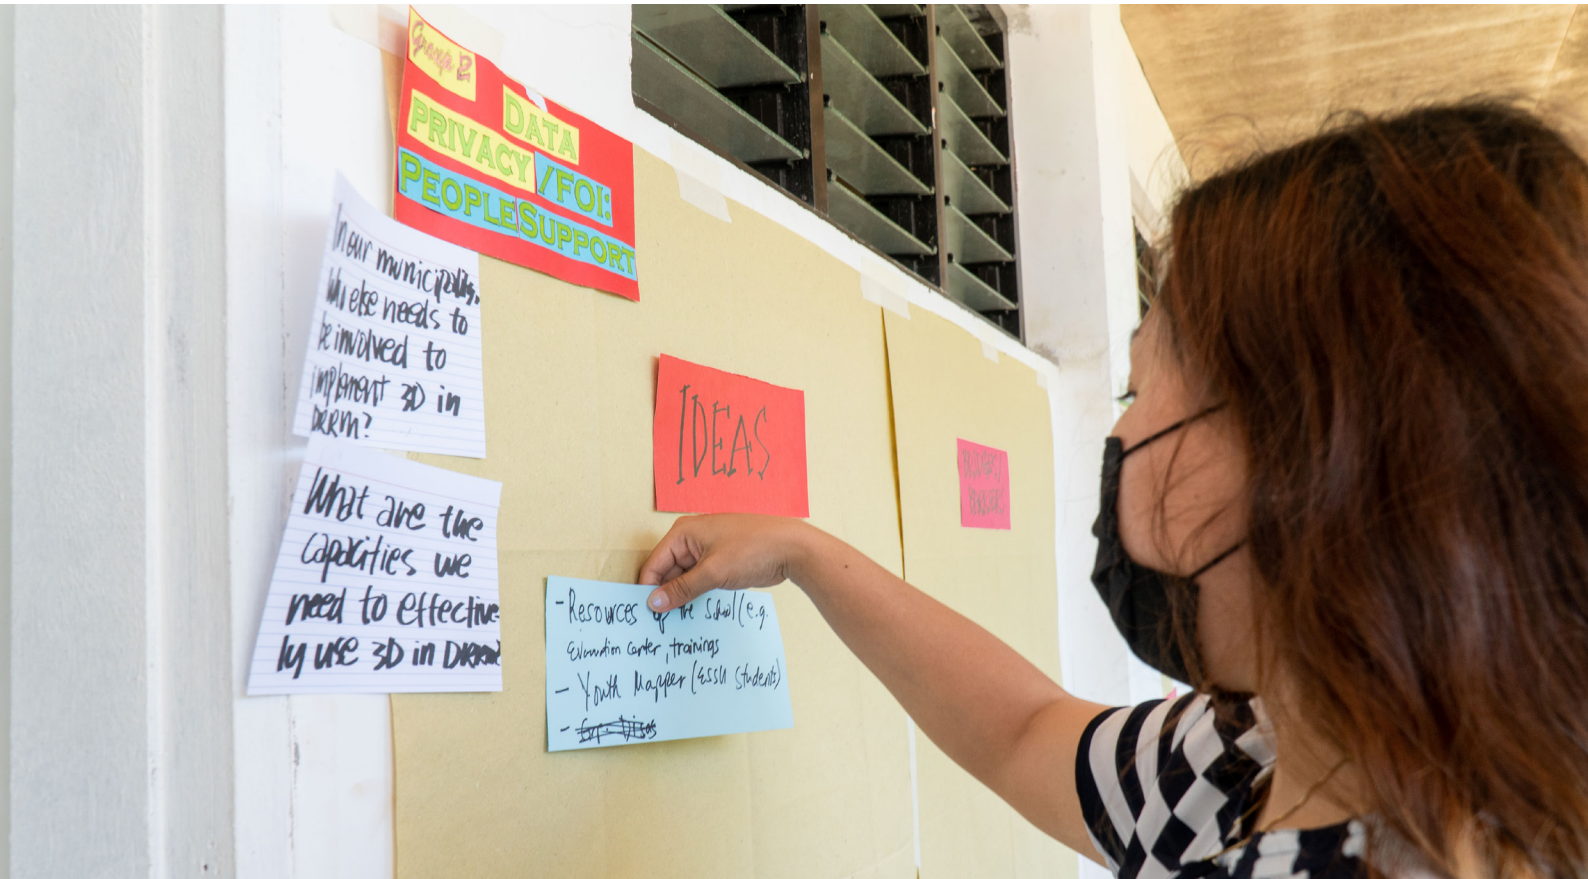 Group 2
DATA
PRIVACY /FOI:
PEOPLE SUPPORT
In our municipality,
Who else needs to
be involved to
implement 3D in
DRRM?
What are the
capacities we
need to effective-
ly use 3D in DRRM?
IDEAS
- Resources of the School (e.g.
Evacuation center, trainings
- Youth Mapper (ESSU students)
-